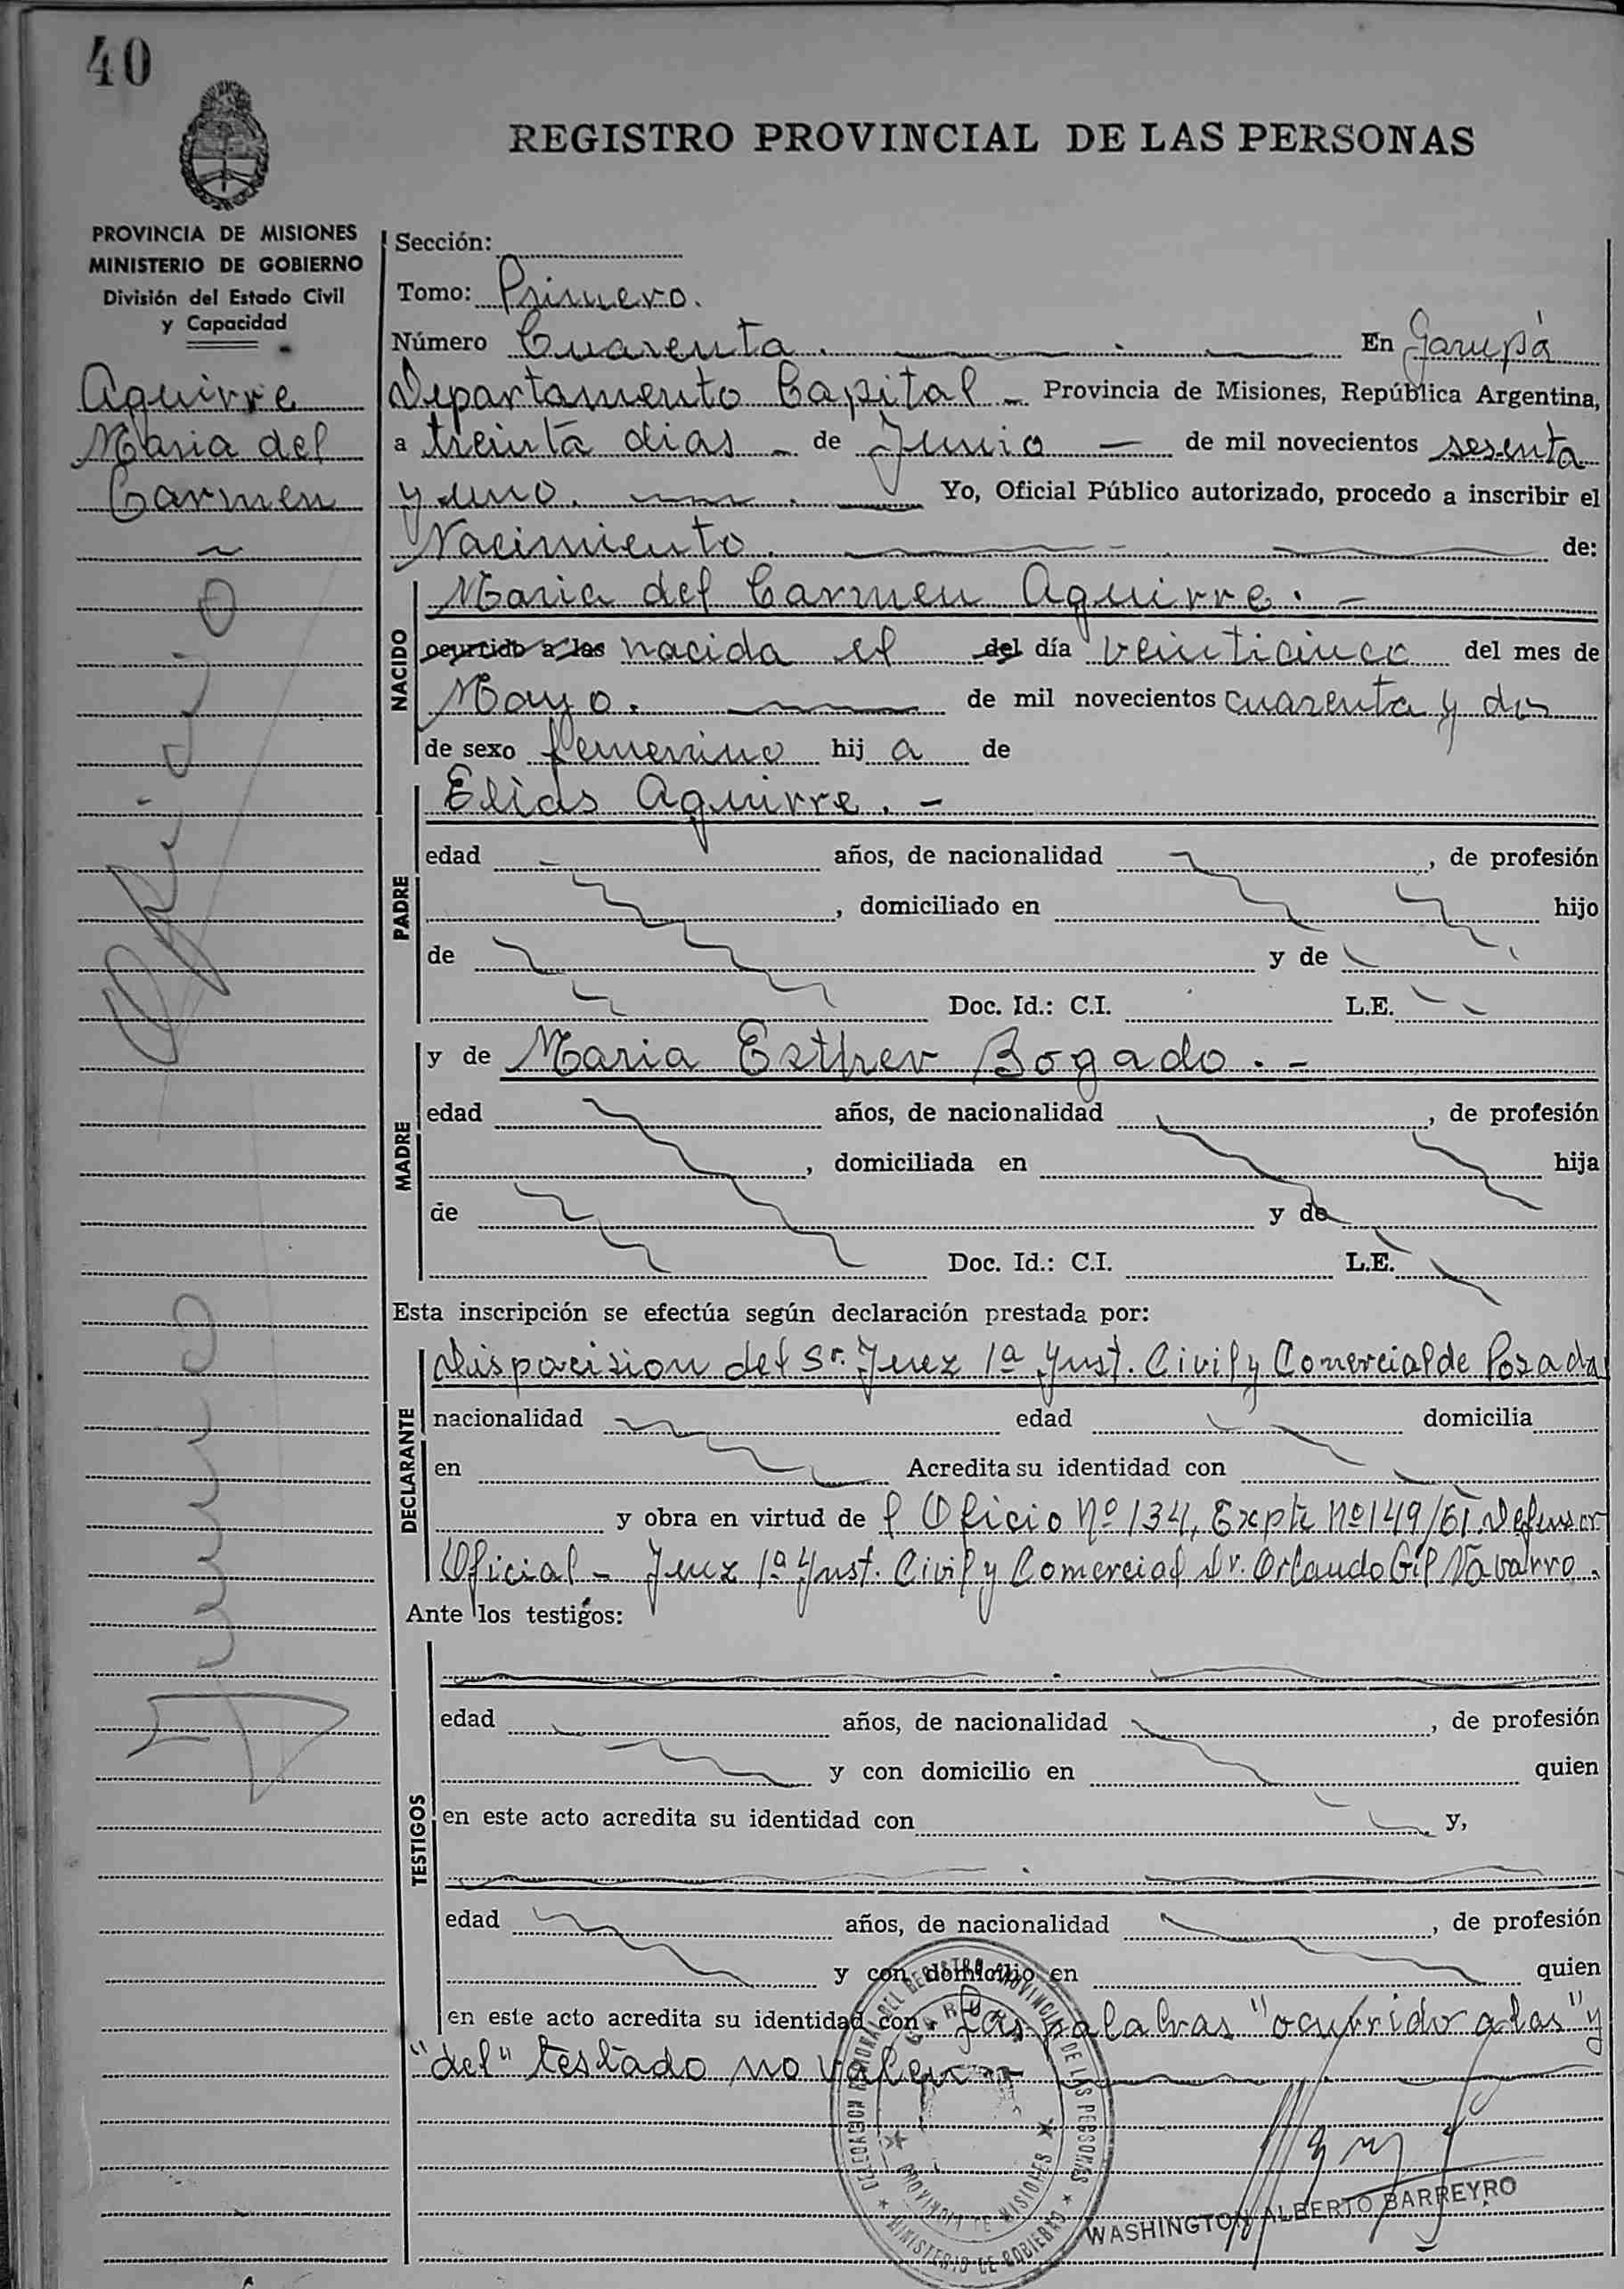 40
REGISTRO PROVINCIAL DE LAS PERSONAS
PROVINCIA DE MISIONES
MINISTERIO DE GOBIERNO
División del Estado Civil
y Capacidad
Aguirre
Maria del
Carmen
Sección:
Tomo: Primero.
Número Cuarenta. En Garupá
Departamento Capital - Provincia de Misiones, República Argentina,
a treinta dias - de Junio - de mil novecientos sesenta
y uno. Yo, Oficial Público autorizado, procedo a inscribir el
Nacimiento. de:
NACIDO
Maria del Carmen Aguirre. -
ocurrido a las nacida el del día veinticinco del mes de
Mayo. de mil novecientos cuarenta y dos
de sexo femenino hij a de
PADRE
Elias Aguirre. -
edad años, de nacionalidad , de profesión
, domiciliado en hijo
de y de
Doc. Id.: C.I. L.E.
MADRE
y de Maria Esther Bogado. -
edad años, de nacionalidad , de profesión
, domiciliada en hija
de y de
Doc. Id.: C.I. L.E.
Esta inscripción se efectúa según declaración prestada por:
DECLARANTE
Disposicion del Sr. Juez 1a Inst. Civil y Comercial de Posadas
nacionalidad edad domicilia
en Acredita su identidad con
y obra en virtud de l Oficio Nº 134, Expte Nº 149/61. Defensor
Oficial - Juez 1a Inst. Civil y Comercial Dr. Orlando Gil Navarro.
Ante los testigos:
TESTIGOS
edad años, de nacionalidad , de profesión
y con domicilio en quien
en este acto acredita su identidad con y,
edad años, de nacionalidad , de profesión
y con domicilio en quien
en este acto acredita su identidad con. Las palabras "ocurrido a las" y
"del" testado no valen -
DELEGACION REGIONAL DEL REGISTRO PROVINCIAL DE LAS PERSONAS
MINISTERIO DE GOBIERNO
PROVINCIA DE MISIONES
WASHINGTON ALBERTO BARREYRO